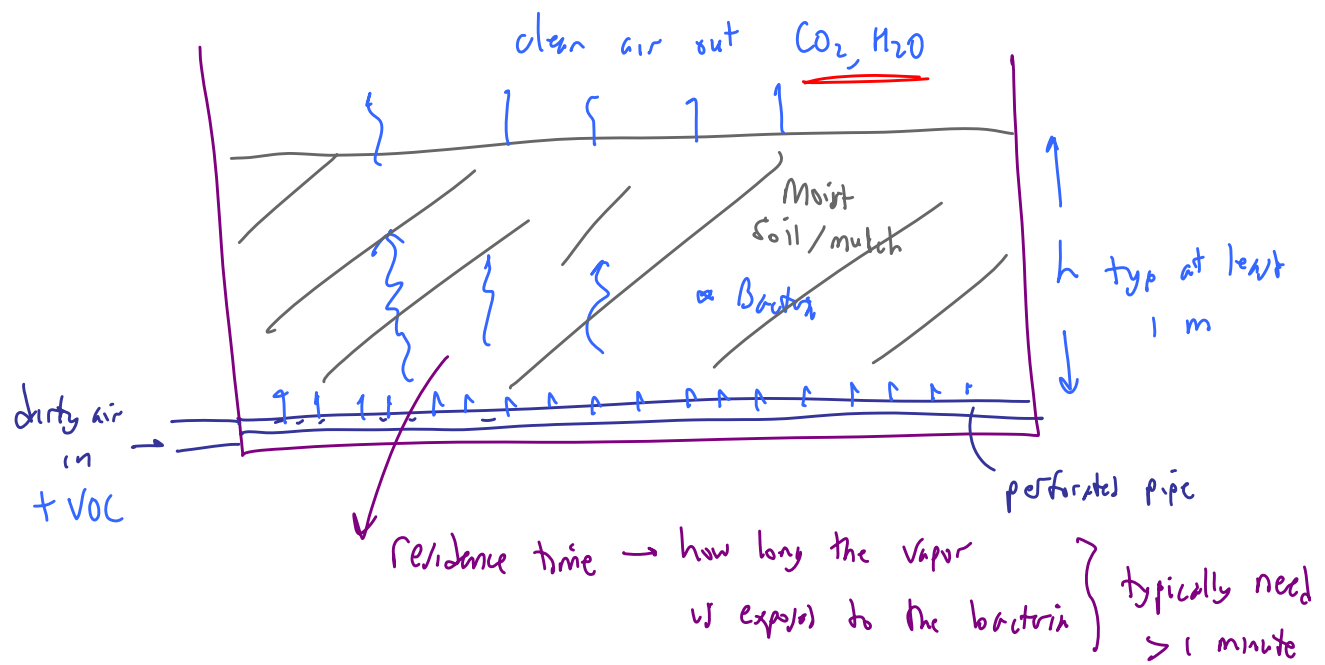 clean air out CO₂, H₂O
Moist
soil/mulch
Bacteria
h typ at least
1 m
dirty air
in
+ VOC
perforated pipe
residence time → how long the vapor
is exposed to the bacteria
typically need
> 1 minute